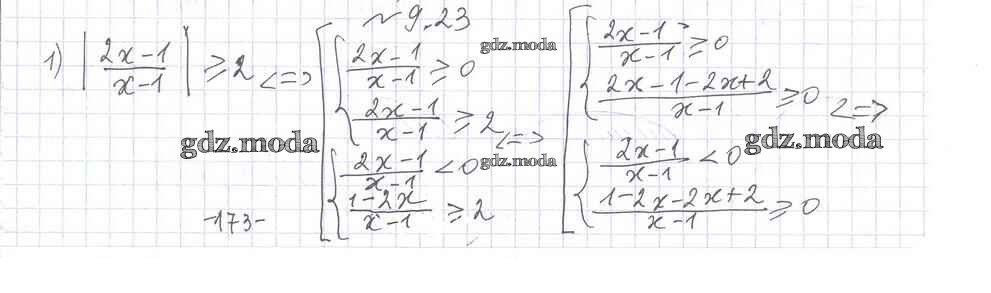 № 9.23
1) |(2x-1)/(x-1)| ≥ 2 <=> [ { (2x-1)/(x-1) ≥ 0
(2x-1)/(x-1) ≥ 2
{ (2x-1)/(x-1) < 0
(1-2x)/(x-1) ≥ 2
<=> [ { (2x-1)/(x-1) ≥ 0
(2x-1-2x+2)/(x-1) ≥ 0
{ (2x-1)/(x-1) < 0
(1-2x-2x+2)/(x-1) ≥ 0
<=>
-173-
gdz.moda
gdz.moda
gdz.moda
gdz.moda